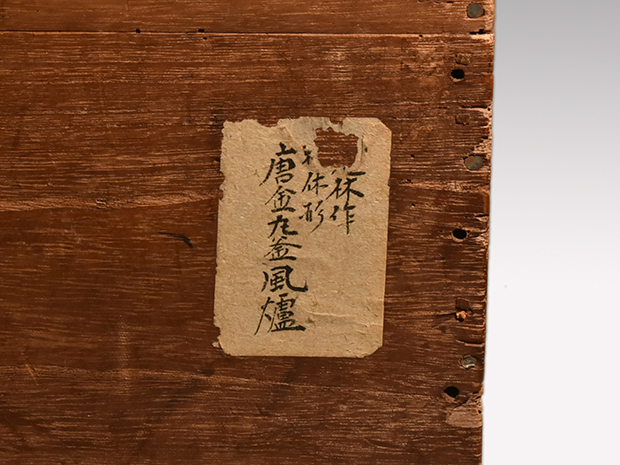 休作
休形
唐金丸釜風爐